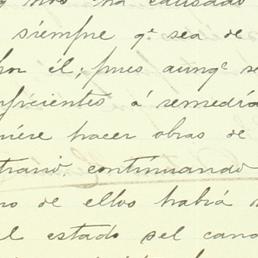 ha causado
siempre qe. sea de
por él; pues aunqe. se
suficientes á remedia
quiere hacer obras de
trario, continuando
ro de ellos habrá
el estado del cana